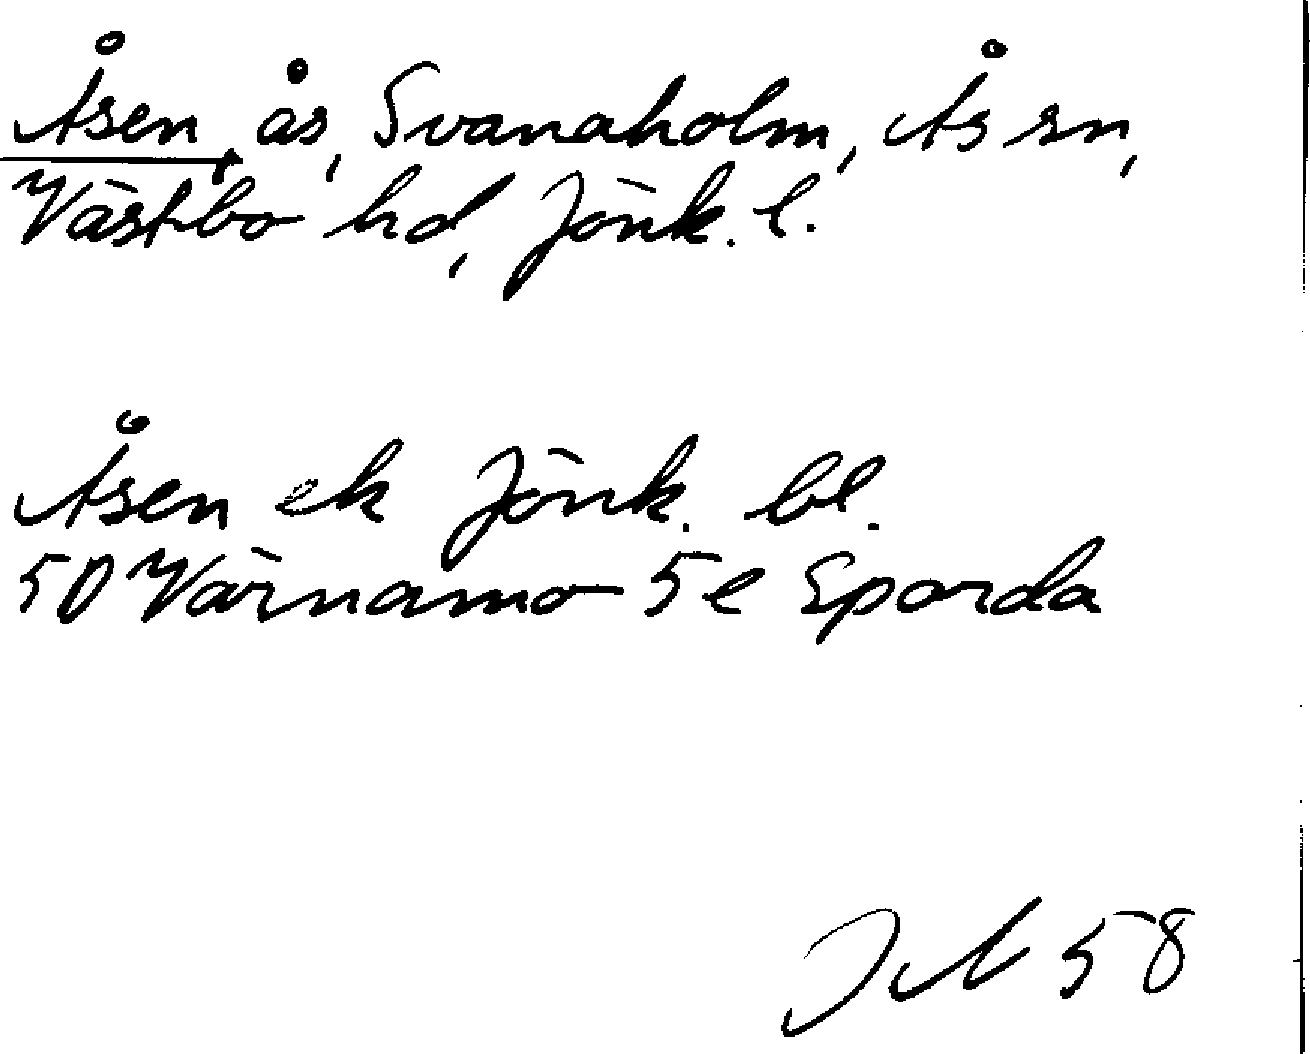 Åsen, ås, Svanaholm, Ås sn,
Västbo hd, Jönk. l.
Åsen ek Jönk. bl.
5D Värnamo 5e Sporda
58